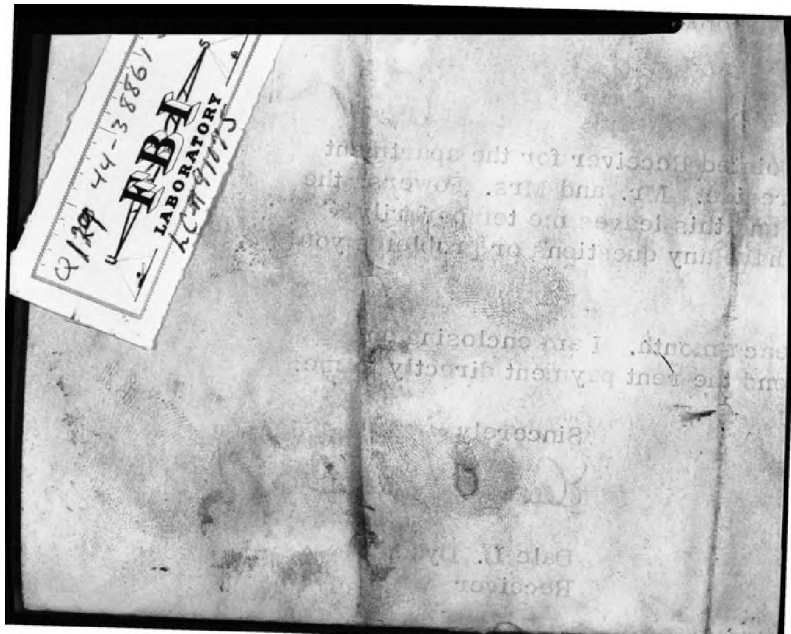 Q129 44-38861
F·B·I
LABORATORY
LC-A91075
ointed Receiver for the apartment
Mr. and Mrs. Powers, the
this leaves me temporarily
any questions or problems you
month. I am enclosing
end the rent payment directly to me.
Sincerely
Dale L. Dy
Receiver